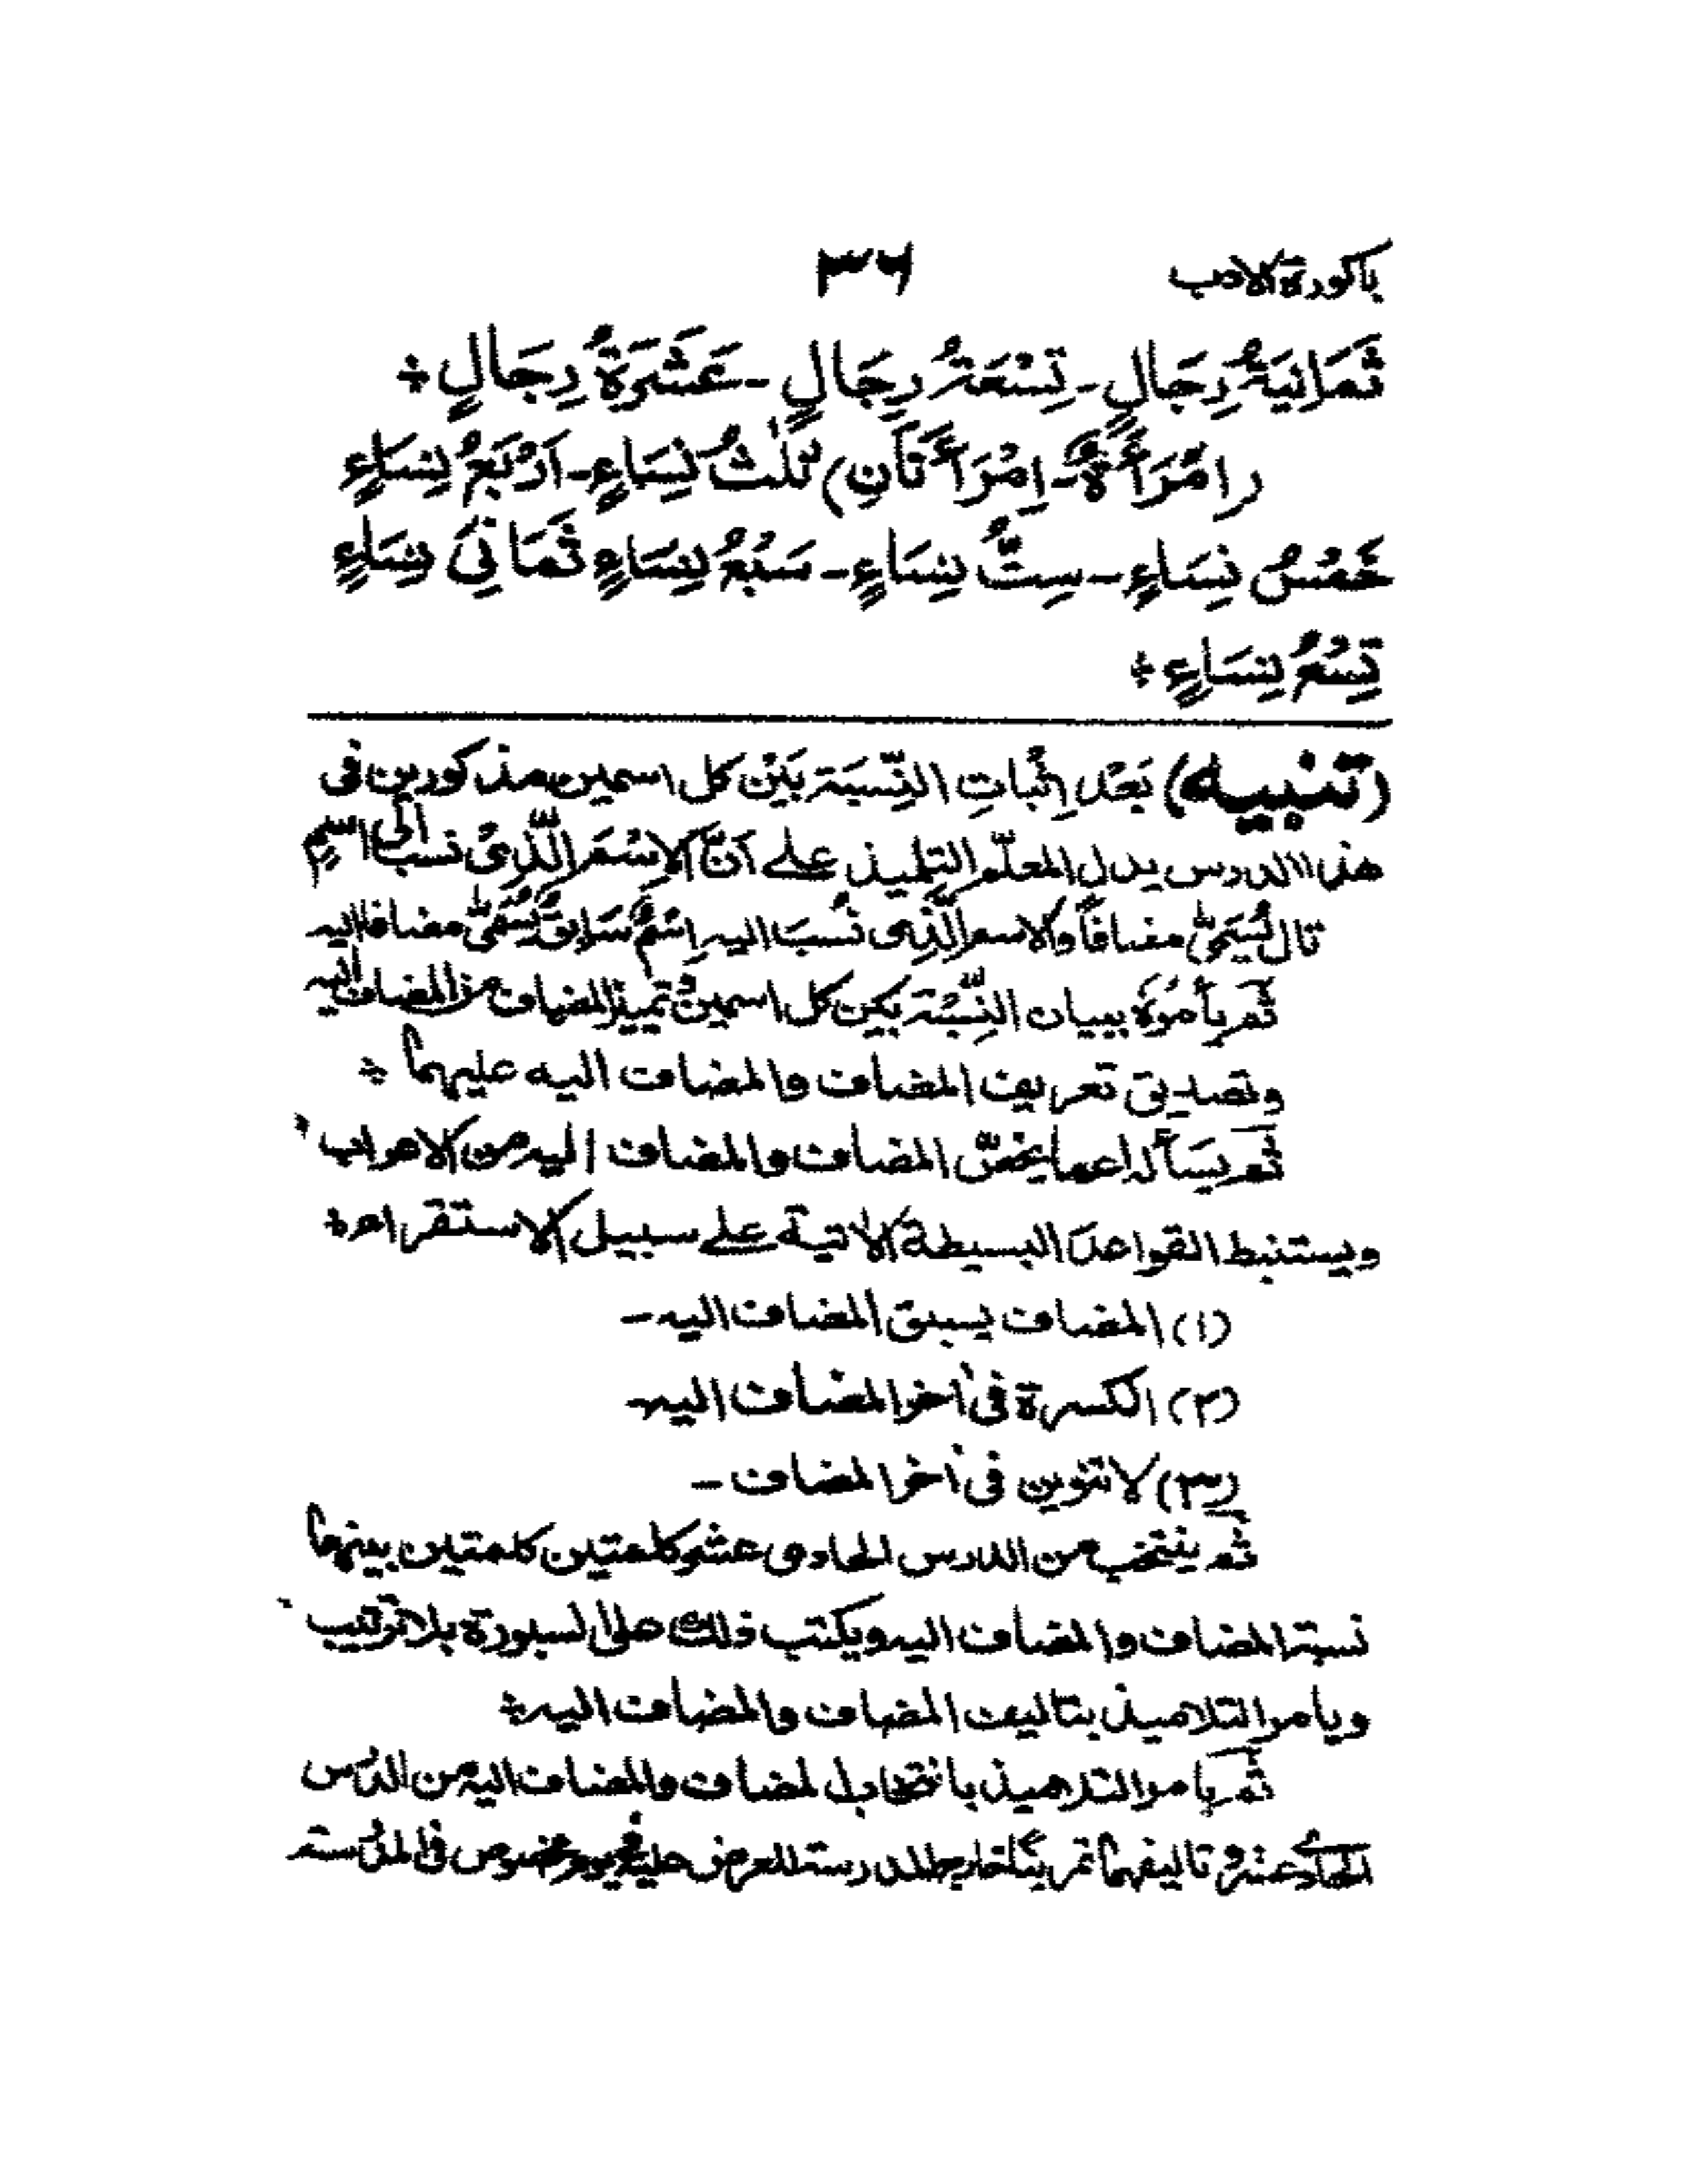 باكورة الادب
٣٦
ثَمَانِيَةُ رِجَالٍ - تِسْعَةُ رِجَالٍ - عَشَرَةُ رِجَالٍ ÷
(اِمْرَأَةٌ - اِمْرَأَتَانِ) ثَلٰثُ نِسَاءٍ - اَرْبَعُ نِسَاءٍ
خَمْسُ نِسَاءٍ - سِتُّ نِسَاءٍ - سَبْعُ نِسَاءٍ ثَمَانِيَ نِسَاءٍ
تِسْعُ نِسَاءٍ ÷
(تنبيه) بَعْدَ اِثْبَاتِ النِّسْبَة بَيْنَ كل اسمين مذكورين فى
هذا الدرس يدل المعلّم التلميذ على اَنَّ الاِسْمَ الَّذِىْ نسب الى اسمٍ
تال يُسَمّٰى مضافاً والاسم الَّذِى نُسبَ اليه اِسْمٌ سَابِقٌ يُسَمّٰى مضافا اليه
ثم يأمُرُهُ ببيان النِّسْبَة بين كل اسمين وتميز المضاف من المضاف اليه
وتصديق تعريف المضاف والمضاف اليه عليهما ÷
ثم يَسْأله عما يخصّ المضاف والمضاف اليه من الاعراب
ويستنبط القواعد البسيطة الاٰتية على سبيل الاستقراء ÷
(١) المضاف يسبق المضاف اليه -
(٢) الكسرة فى اٰخر المضاف اليه -
(٣) لا تنوين فى اٰخر المضاف -
ثم ينتخب من الدرس الحادى عشر كلمتين كلمتين بينهما
نسبة المضاف والمضاف اليه ويكتب ذلك على السبورة بلا ترتيب
ويامر التلاميذ بتاليف المضاف والمضاف اليه ÷
ثم يامر التلاميذ بانتخاب المضاف والمضاف اليه من الدرس
الحادى عشر وتاليفهما تمرينا خارج المدرسة للعرض عليه فى يوم مخصوص فى المدرسة